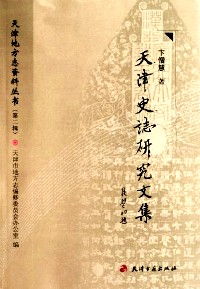 天津地方志资料丛书
(第二辑)
天津市地方志编修委员会办公室 编
卞僧慧 著
天津史志研究文集
天津古籍出版社